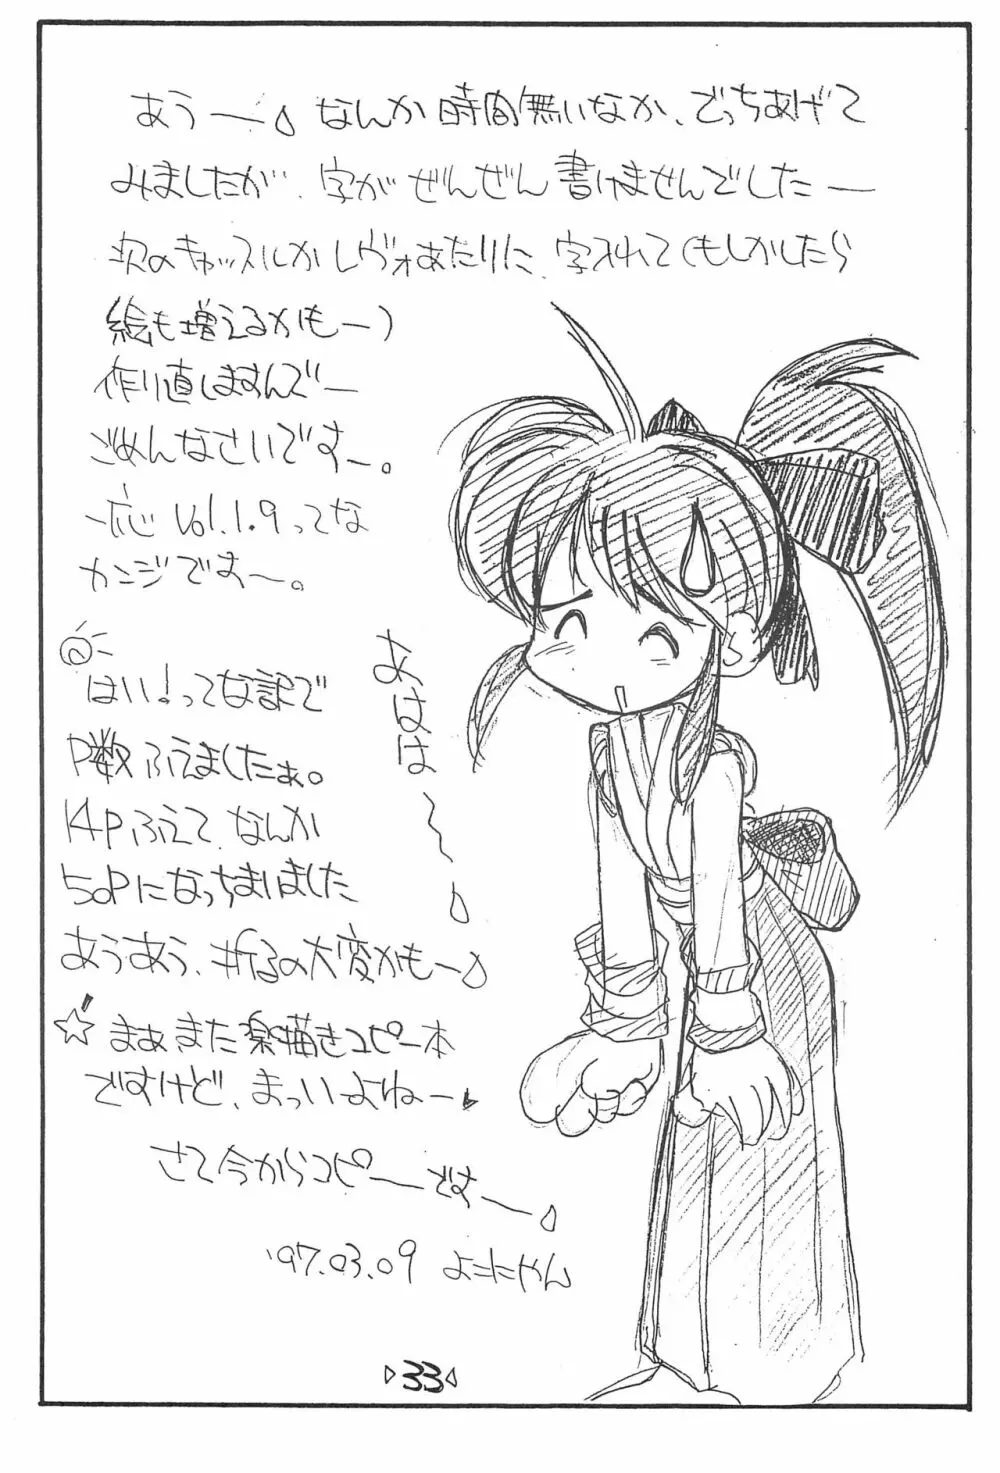 あうーなんか時間無いなか、でっちあげて
みましたが、字がぜんぜん書けませんでしたー
次のキャッスルかレヴォあたりに、字入れて(もしかしたら
絵も増えるかもー)
作り直しますんでー
ごめんなさいですー。
一応Vol.1.9ってな
カンジですー。
はい!って訳で
P数ふえましたぁ。
14Pふえて、なんか
50Pになっちまいました
あうあう、折るの大変かもー
☆まぁまた楽描きコピー本
ですけど、まっいよねー
さて今からコピーですー。
'97.03.09 よこにゃん
あはは〜
33